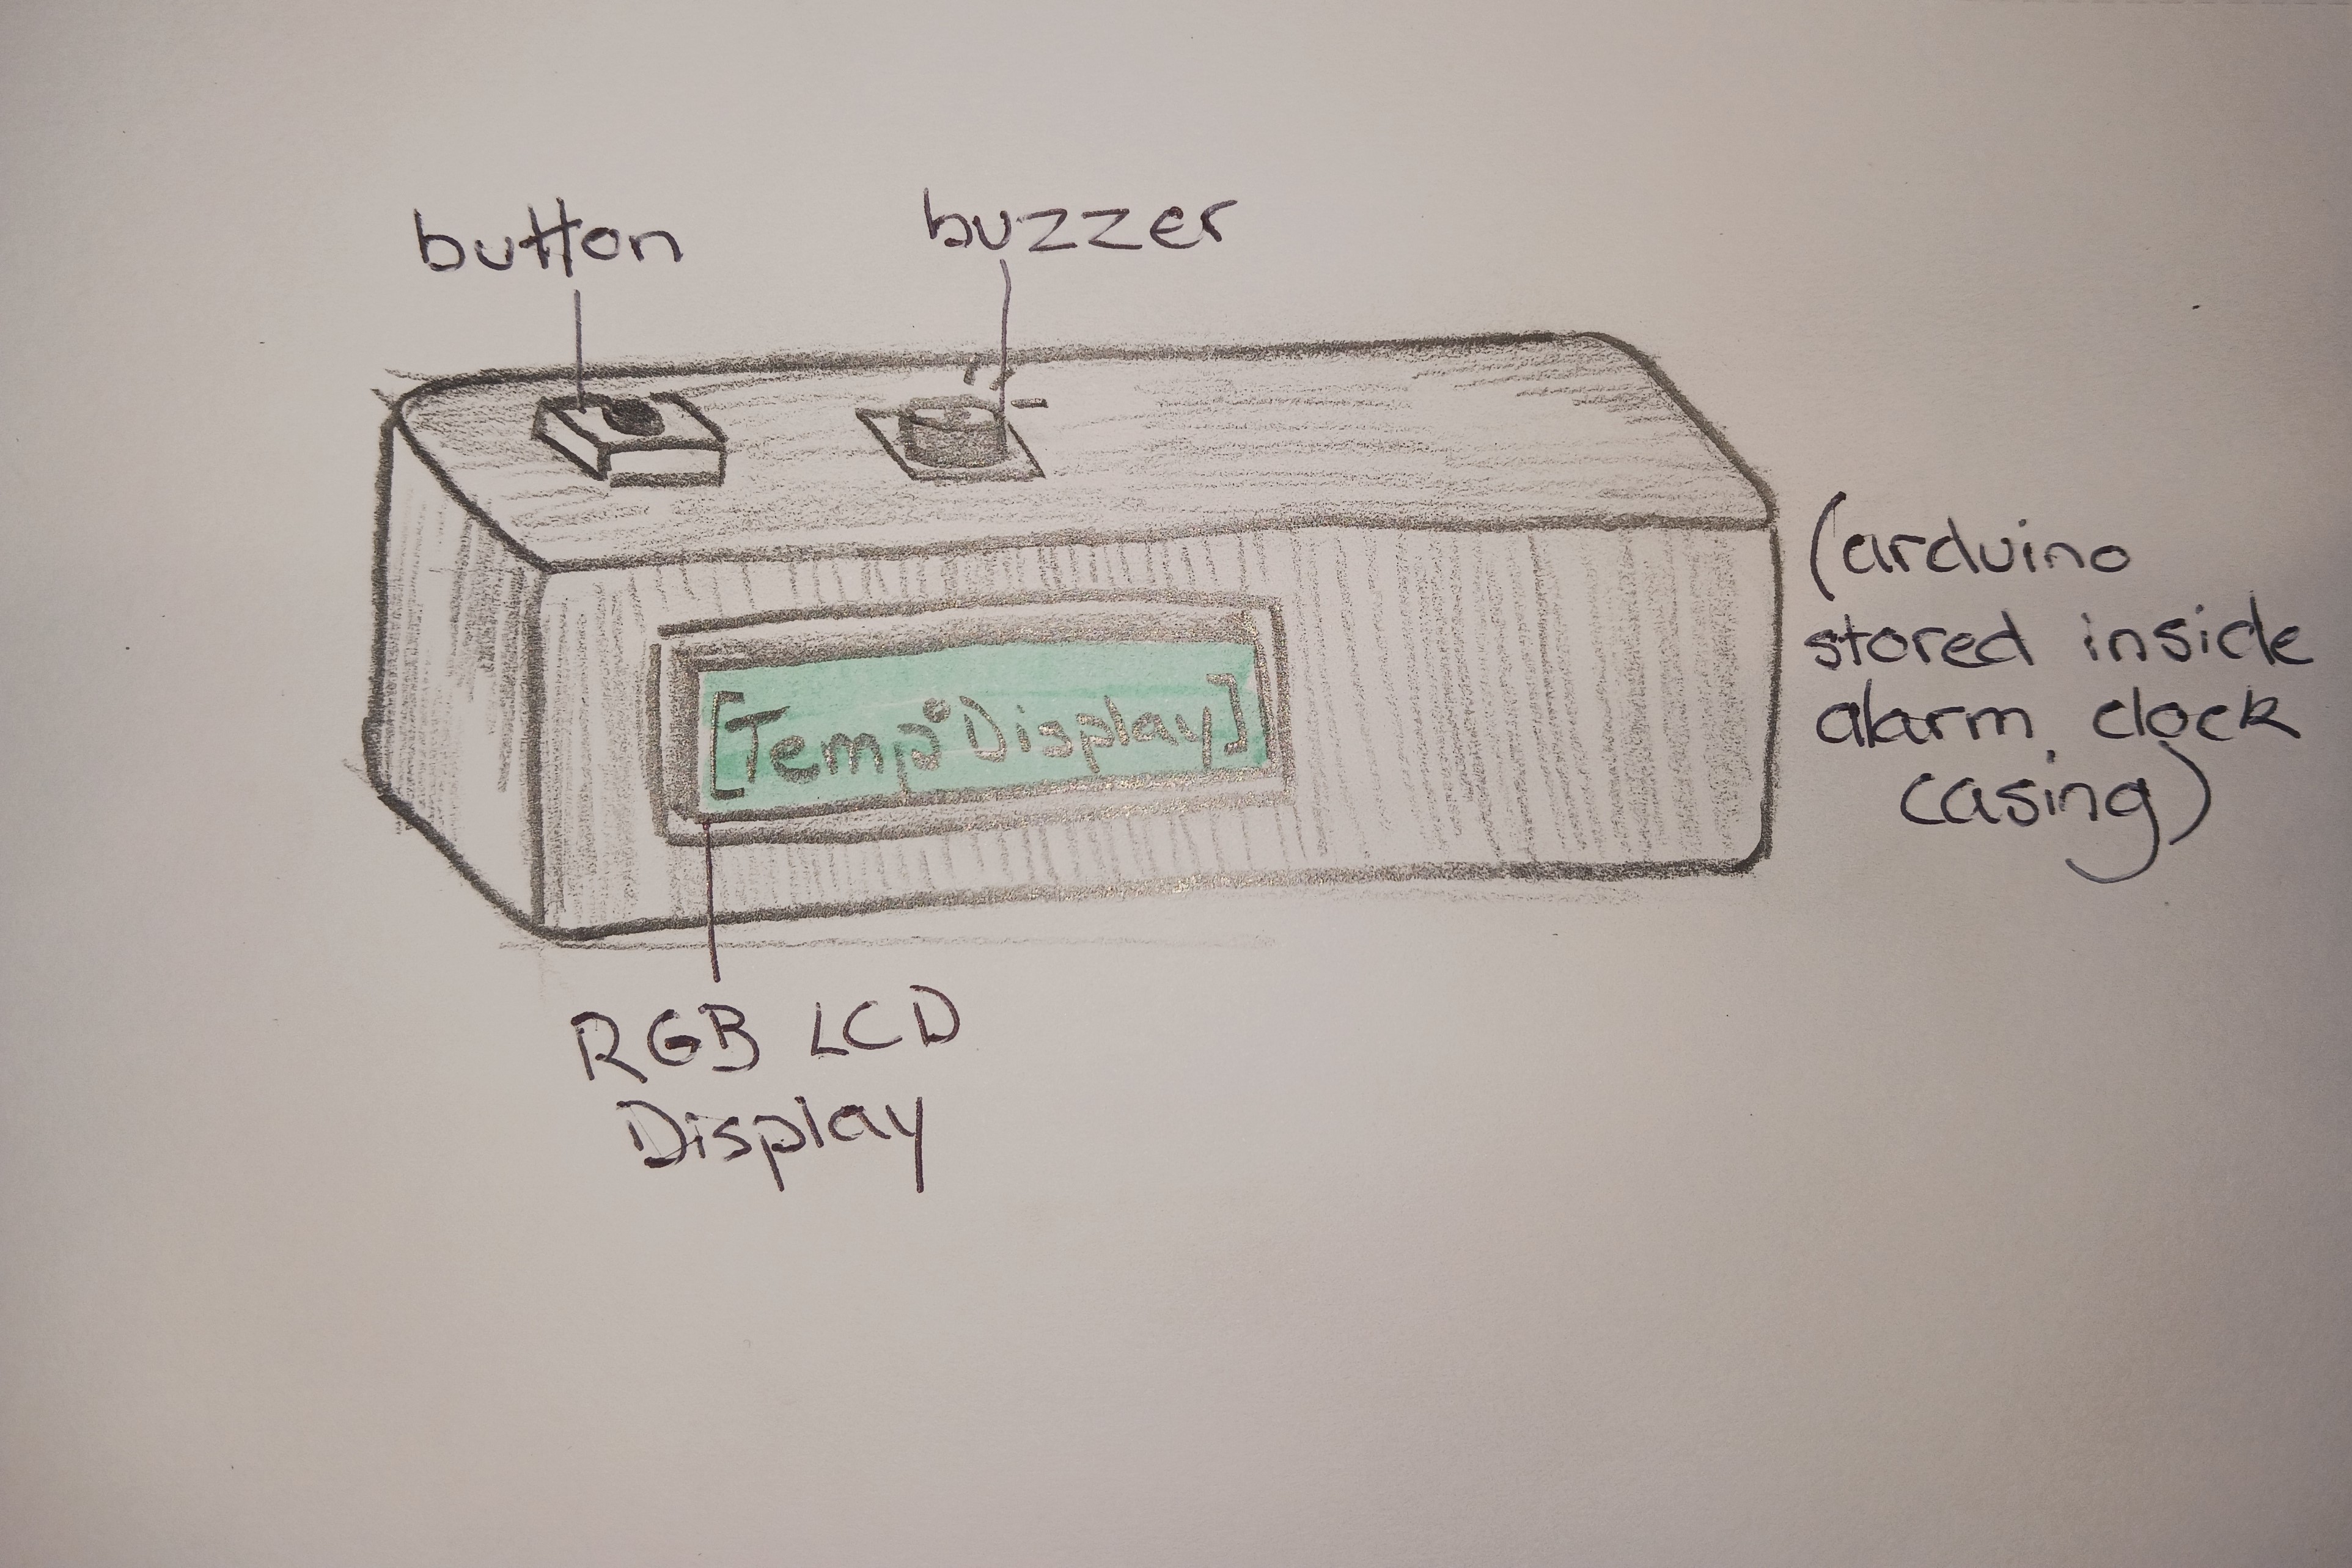 button
buzzer
(arduino
stored inside
alarm clock
casing)
[Temp° Display]
RGB LCD
Display